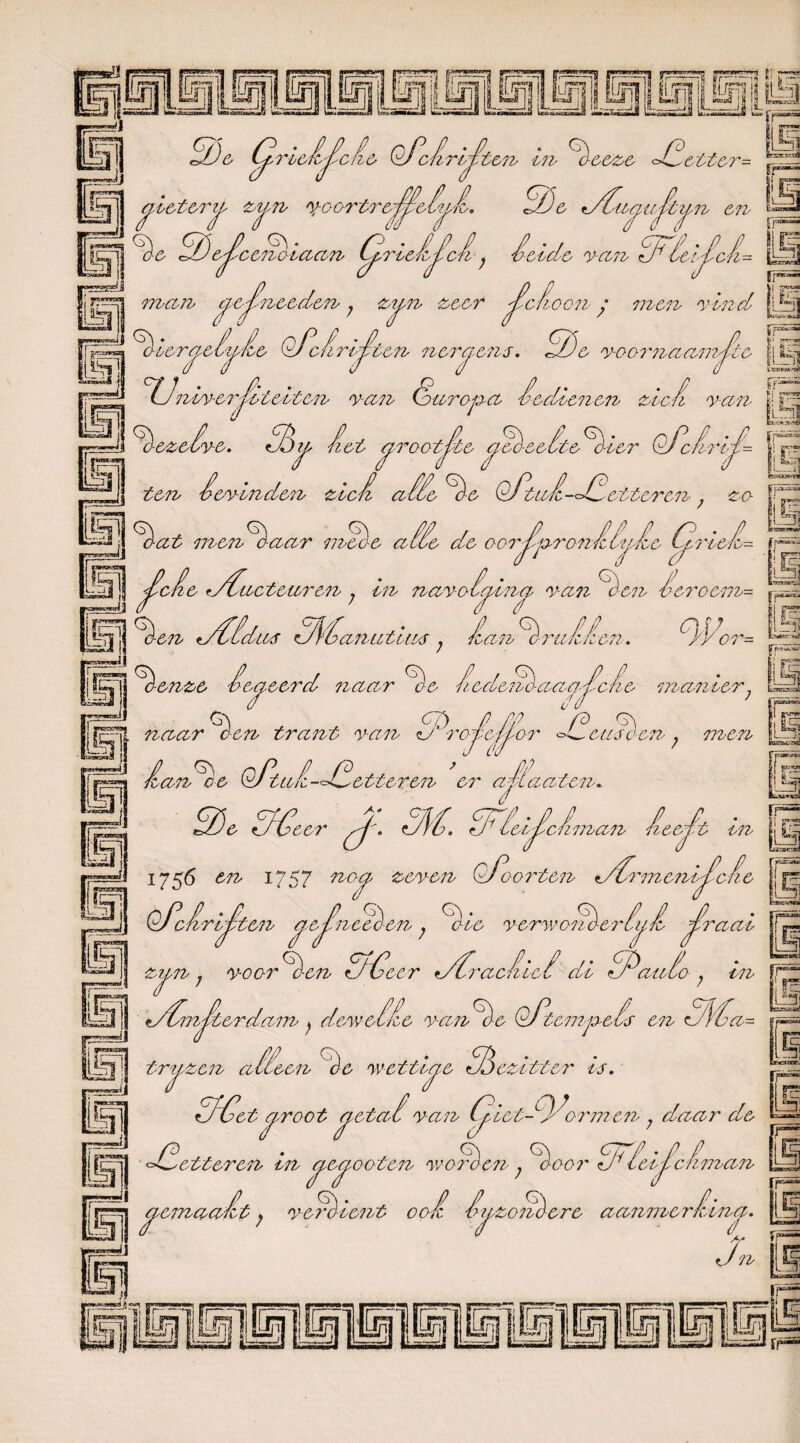 De Griekſche Schriften in deeze Letter=
gietery zyn voortreffelyk. De Auguſtyn en
de Deſcendiaan Griekſch, beide van Fleiſch=
man geſneeden, zyn zeer ſchoon; men vind
diergelyke Schriften nergens. De voornaamſte
Univerſiteiten van Europa bedienen zich van
dezelve. By het grootſte gedeelte dier Schrif=
ten bevinden zich alle de Stuk-Letteren, zo
dat men daar mede alle de oorſpronklyke Griek=
ſche Aucteuren, in navolging van den beroem=
den Aldus Manutius, kan drukken. Wor=
denze begeerd naar de hedendaagſche manier,
naar den trant van Profeſſor Leusden, men
kan de Stuk-Letteren er aflaaten.
De Heer J. M. Fleiſchman heeft in
1756 en 1757 nog zeven Soorten Armeniſche
Schriften geſneeden, die verwonderlyk fraai
zyn, voor den Heer Arachiel di Paulo, in
Amſterdam, dewelke van de Stempels en Ma=
tryzen alleen de wettige Bezitter is.
Het groot getal van Giet-Vormen, daar de
Letteren in gegooten worden, door Fleiſchman
gemaakt, verdient ook byzondere aanmerking.
In